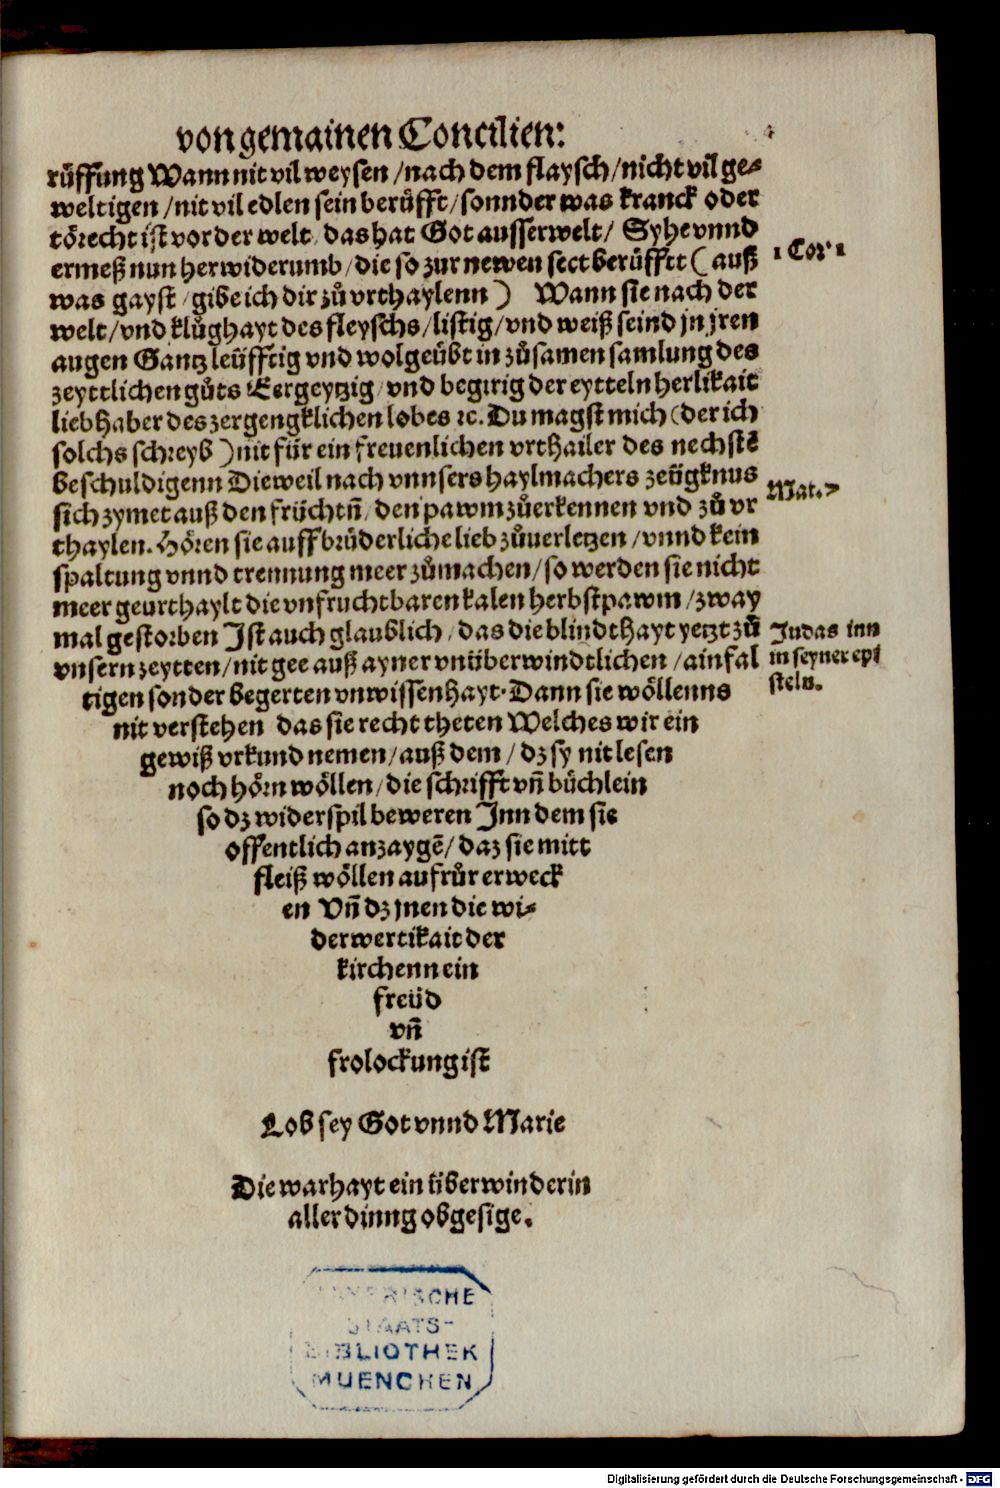 von gemainen Concilien:
rüffung Wann nit vil weysen / nach dem flaysch / nicht vil ge-
weltigen / nit vil edlen sein berüfft / sonnder was kranck oder
törecht ist vor der welt / das hat Got ausserwelt / Syhe vnnd
ermeß nun herwiderumb / die so zur newen sect berüfftt ( auß
1 Cor. 1
was gayst / gibe ich dir zů vrthaylenn ) Wann sie nach der
welt / vnd klůghayt des fleyschs / listig / vnd weiß seind jn jren
augen Gantz leüfftig vnd wolgeübt in zůsamen samlung des
zeyttlichen gůts Eergeytzig / vnd begirig der eytteln herlikait
liebhaber des zergengklichen lobes ꝛc. Du magst mich (der ich
solchs schreyb ) nit für ein freuenlichen vrthailer des nechstē
beschuldigenn Dieweil nach vnnsers haylmachers zeügknus
Mat. 7
sich zymet auß den früchtn̄ / den pawm zůerkennen vnd zů vr
thaylen. Hören sie auff brüderliche lieb zůuerletzen / vnnd kein
spaltung vnnd trennung meer zůmachen / so werden sie nicht
meer geurthaylt die vnfruchtbaren kalen herbstpawm / zway
mal gestorben Ist auch glaublich / das die blindthayt yetzt zů
Judas inn
vnsern zeytten / nit gee auß ayner vnüberwindtlichen / ainfal
in seyner epi
tigen sonder begerten vnwissenhayt. Dann sie wöllenns
steln.
nit verstehen das sie recht theten Welches wir ein
gewiß vrkund nemen / auß dem / dz sy nit lesen
noch hörn wöllen / die schrifft vn̄ büchlein
so dz widerspil beweren Inn dem sie
offentlich anzaygē / daz sie mitt
fleiß wöllen aufrůr erweck
en Vn̄ dz jnen die wi-
derwertikait der
kirchenn ein
freüd
vn̄
frolockung ist
Lob sey Got vnnd Marie
Die warhayt ein überwinderin
aller dinng obgesige.
BAYERISCHE
STAATS-
BIBLIOTHEK
MUENCHEN
Digitalisierung gefördert durch die Deutsche Forschungsgemeinschaft - DFG